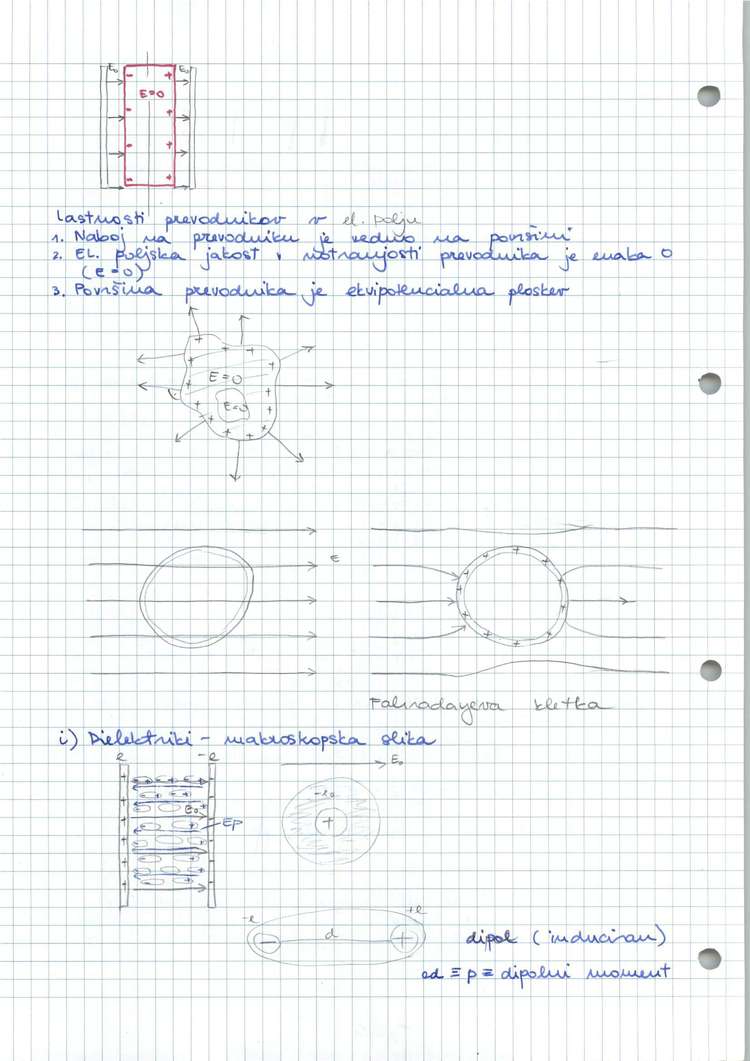 E₀ E₀
- +
E=0
- +
- +
- +
Lastnosti prevodnikov v el. polju
1. Naboj na prevodniku je vedno na površini
2. EL. poljska jakost v notranjosti prevodnika je enaka 0
(E=0)
3. Površina prevodnika je ekvipotencialna ploskev
E=0
E=0
E
Fahradayeva kletka
i) Dielektriki - makroskopska slika
e -e
E₀
E₀
Ep
+
-e +e
- d +
dipol (induciran)
ed ≡ p ≡ dipolni moment